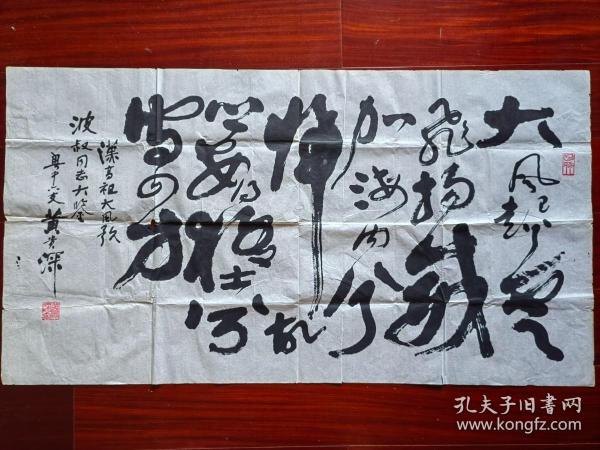 大风起兮云
飛揚威
加海内兮
帰故
乡安得猛士兮
守四方
漢高祖大風歌
波叔同志大鉴
孔夫子旧书网
www.kongfz.com